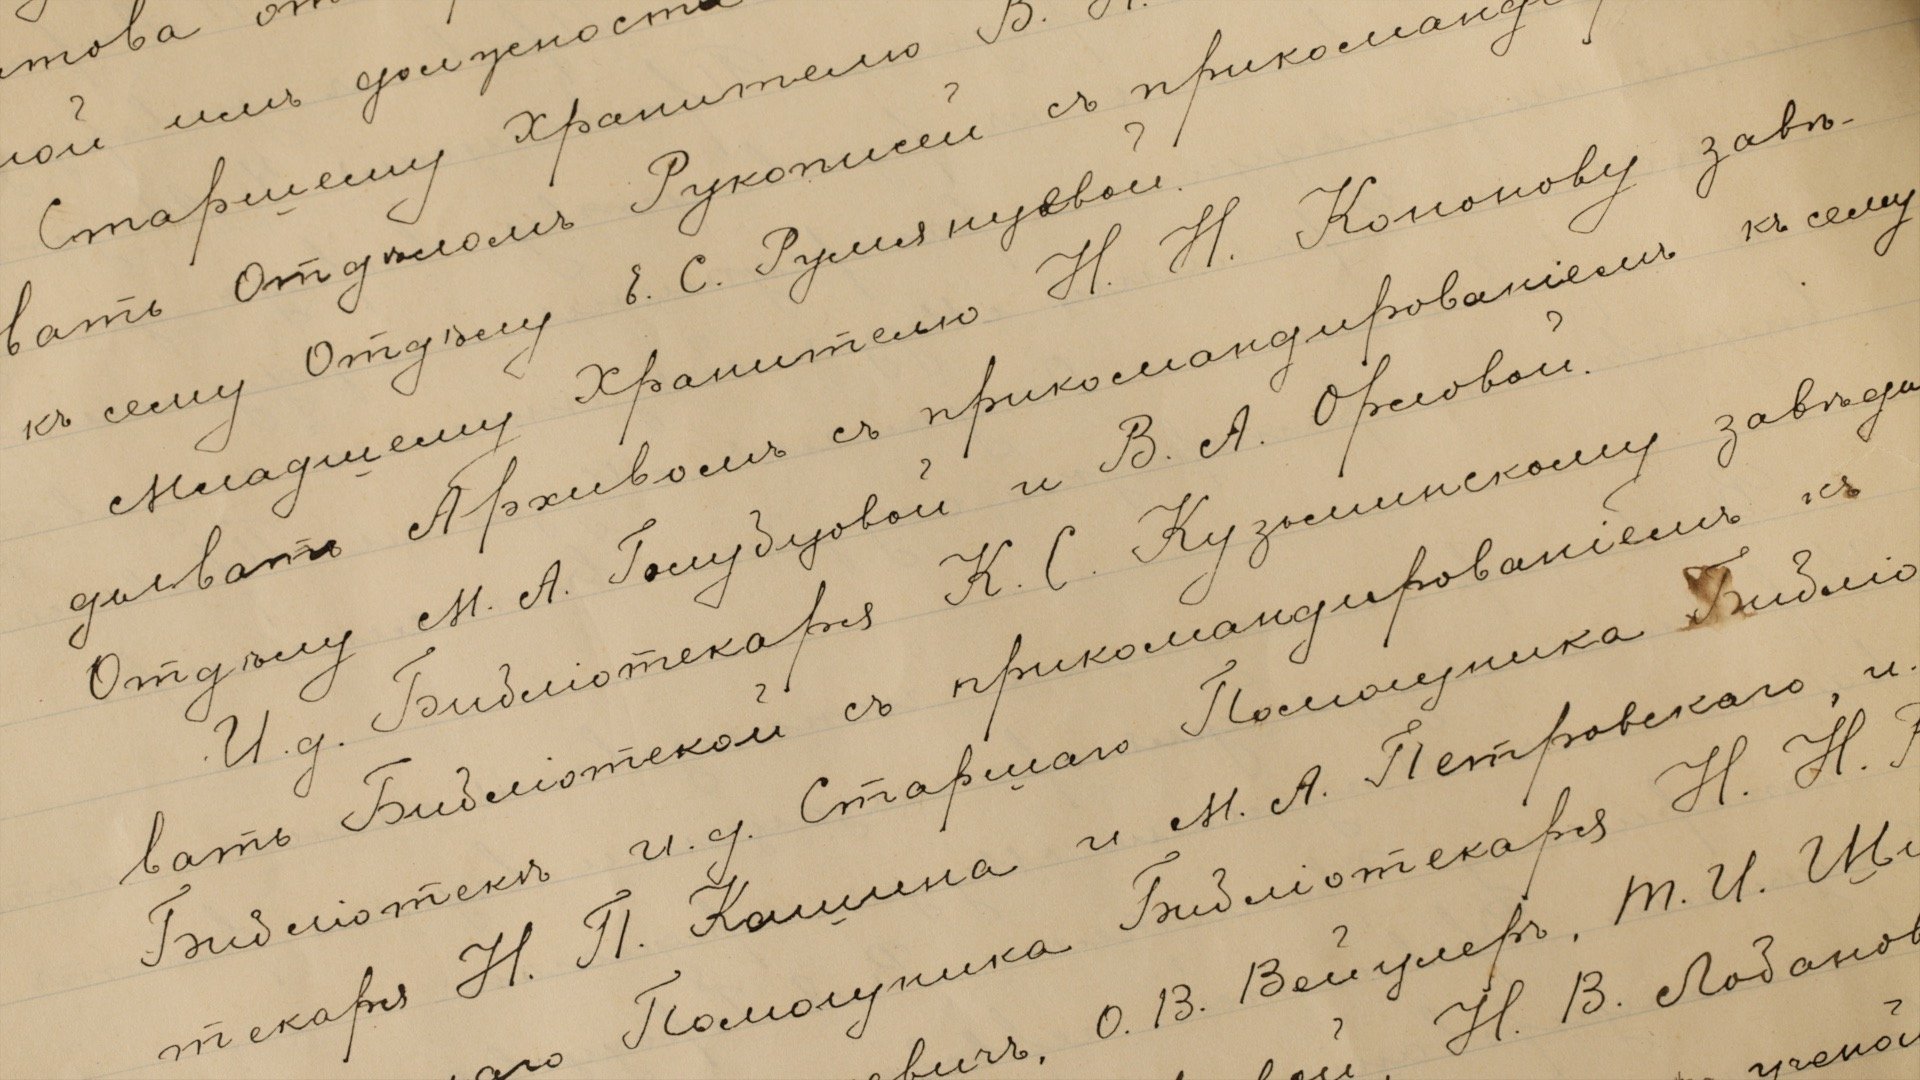 должности
Старшему Хранителю В.
вать Отдѣломъ Рукописей съ
къ сему Отдѣлу Е. С. Румянцевой.
Младшему Хранителю Н. Н. Кононову завѣ-
дывать Архивомъ съ прикомандированіемъ къ сему
Отдѣлу М. А. Голубцовой и В. А. Орловой.
И. д. Библіотекаря К. С. Кузьминскому
вать Библіотекой съ прикомандированіемъ къ
Библіотекѣ и. д. Старшаго Помощника Библіо
текаря Н. П. Кашина и М. А. Петровскаго, и.
Помощника Библіотекаря Н. Н.
О. В. Вейцлеръ, Т. И.
Н. В.
ученой